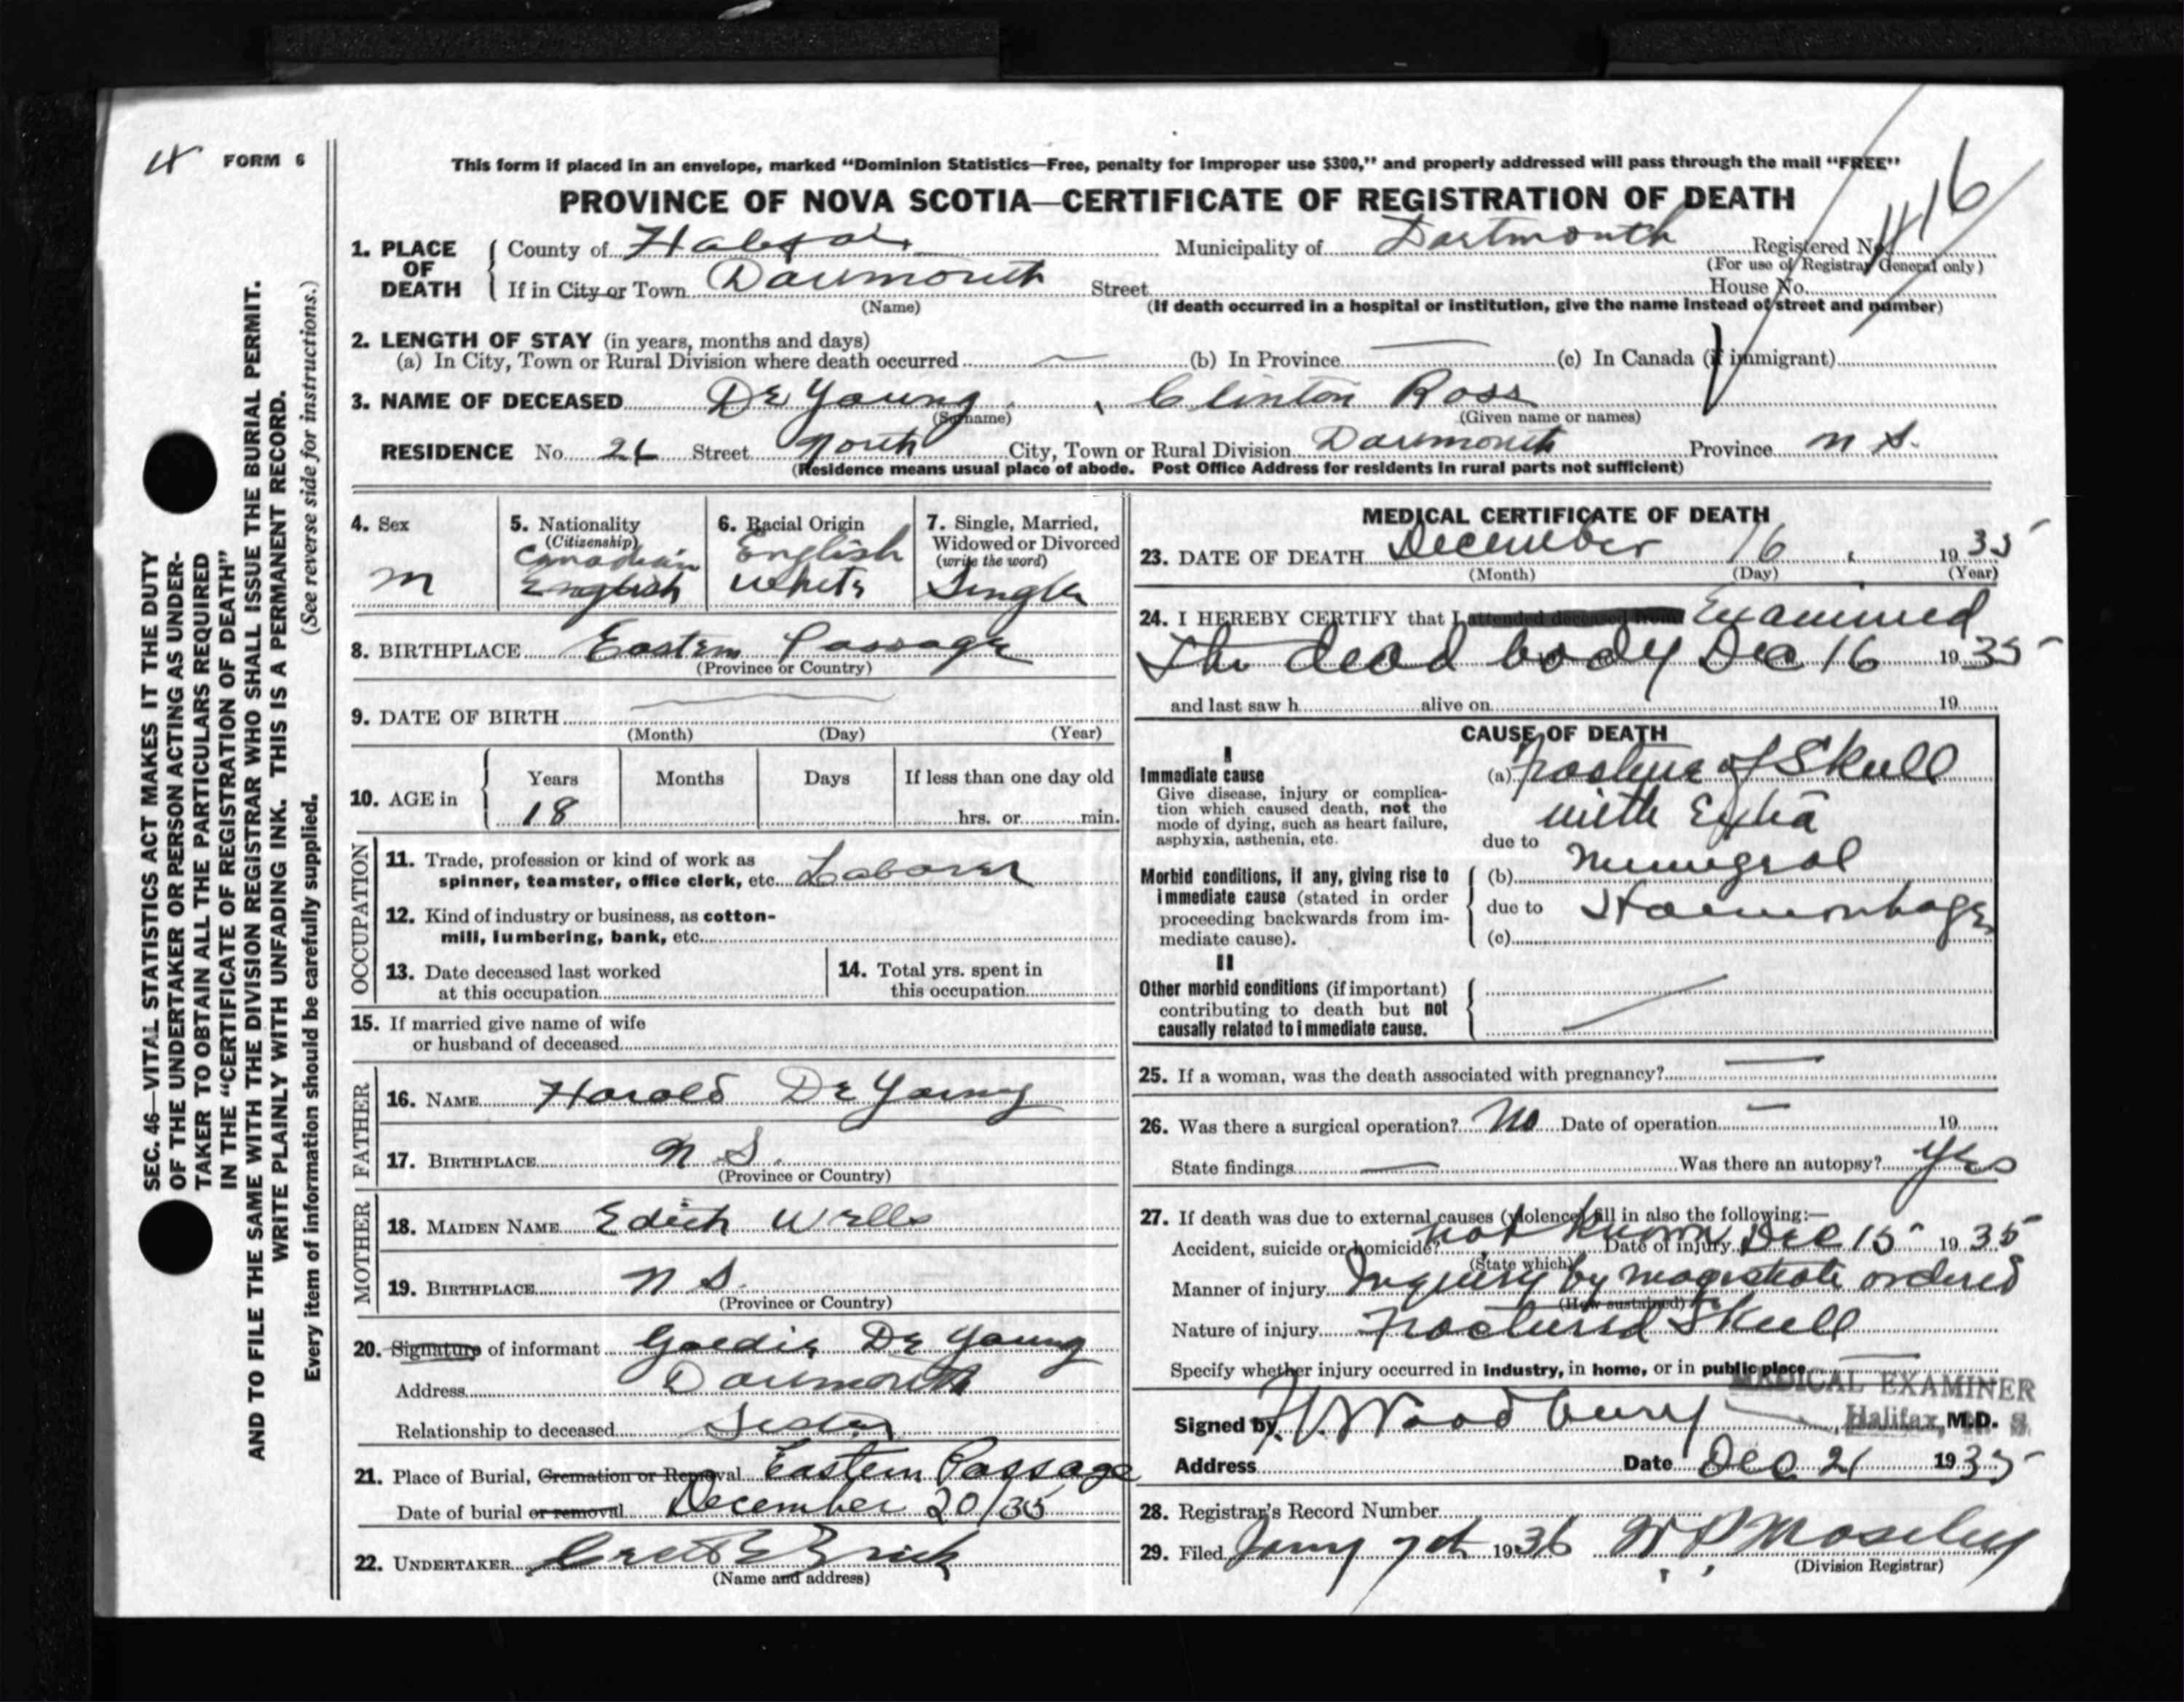 FORM 6
This form if placed in an envelope, marked “Dominion Statistics—Free, penalty for improper use $300,” and properly addressed will pass through the mail “FREE”
PROVINCE OF NOVA SCOTIA—CERTIFICATE OF REGISTRATION OF DEATH
1. PLACE OF DEATH
County of Halifax Municipality of Dartmouth Registered No.
(For use of Registrar General only)
If in City or Town Dartmouth Street House No.
(Name) (If death occurred in a hospital or institution, give the name instead of street and number)
2. LENGTH OF STAY (in years, months and days)
(a) In City, Town or Rural Division where death occurred — (b) In Province — (c) In Canada (if immigrant)
3. NAME OF DECEASED De Young, Clinton Ross
(Surname) (Given name or names)
RESIDENCE No. 26 Street North City, Town or Rural Division Dartmouth Province N S.
(Residence means usual place of abode. Post Office Address for residents in rural parts not sufficient)
4. Sex
M
5. Nationality
(Citizenship)
Canadian
English
6. Racial Origin
English
White
7. Single, Married,
Widowed or Divorced
(write the word)
Single
8. BIRTHPLACE Eastern Passage
(Province or Country)
9. DATE OF BIRTH —
(Month) (Day) (Year)
10. AGE in
Years Months Days If less than one day old
18 hrs. or min.
OCCUPATION
11. Trade, profession or kind of work as
spinner, teamster, office clerk, etc. Laborer
12. Kind of industry or business, as cotton-
mill, lumbering, bank, etc.
13. Date deceased last worked
at this occupation
14. Total yrs. spent in
this occupation
15. If married give name of wife
or husband of deceased
FATHER
16. NAME Harold De Young
17. BIRTHPLACE N S.
(Province or Country)
MOTHER
18. MAIDEN NAME Edith Wells
19. BIRTHPLACE N S.
(Province or Country)
20. Signature of informant Goldie De Young
Address Dartmouth
Relationship to deceased Sister
21. Place of Burial, Cremation or Removal Eastern Passage
Date of burial or removal December 20/35
22. UNDERTAKER
(Name and address)
MEDICAL CERTIFICATE OF DEATH
23. DATE OF DEATH December 16, 1935
(Month) (Day) (Year)
24. I HEREBY CERTIFY that I attended deceased from Examined
the dead body Dec 16 1935
and last saw h alive on 19
CAUSE OF DEATH
I
Immediate cause
Give disease, injury or complica-
tion which caused death, not the
mode of dying, such as heart failure,
asphyxia, asthenia, etc.
(a) Fracture of Skull
with Extra
due to
Morbid conditions, if any, giving rise to
immediate cause (stated in order
proceeding backwards from im-
mediate cause).
(b) Meningeal
due to Haemorrhage
(c)
II
Other morbid conditions (if important)
contributing to death but not
causally related to immediate cause.
25. If a woman, was the death associated with pregnancy? —
26. Was there a surgical operation? No Date of operation — 19
State findings — Was there an autopsy? Yes
27. If death was due to external causes (violence) fill in also the following:—
Accident, suicide or homicide? not known Date of injury Dec 15 1935
(State which)
Manner of injury Inquiry by magistrate ordered
(How sustained)
Nature of injury Fractured Skull
Specify whether injury occurred in industry, in home, or in public place —
MEDICAL EXAMINER
Halifax, N. S.
Signed by Woodbury M.D.
Address Date Dec 21 1935
28. Registrar's Record Number
29. Filed Jany 7th 1936 Moseley
(Division Registrar)
SEC. 46—VITAL STATISTICS ACT MAKES IT THE DUTY
OF THE UNDERTAKER OR PERSON ACTING AS UNDER-
TAKER TO OBTAIN ALL THE PARTICULARS REQUIRED
IN THE “CERTIFICATE OF REGISTRATION OF DEATH”
AND TO FILE THE SAME WITH THE DIVISION REGISTRAR WHO SHALL ISSUE THE BURIAL PERMIT.
WRITE PLAINLY WITH UNFADING INK. THIS IS A PERMANENT RECORD.
Every item of information should be carefully supplied. (See reverse side for instructions.)